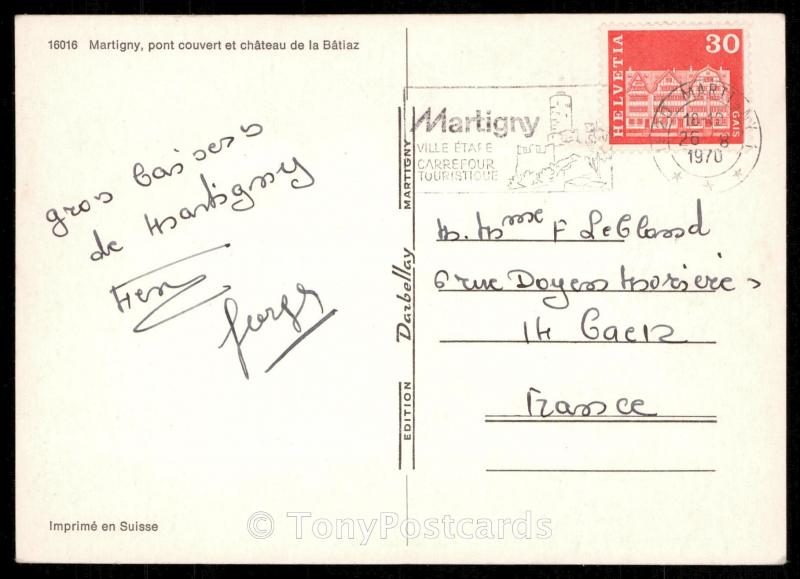 16016 Martigny, pont couvert et château de la Bâtiaz
HELVETIA
30
GAIS
Martigny
VILLE ÉTAPE
CARREFOUR
TOURISTIQUE
MARTIGNY 1
18-19
26 8
1970
gros baisers
de Martigny
EDITION Darbellay MARTIGNY
M. Mme F LeBlond
6 rue Doyen Morière
14 Caen
France
Imprimé en Suisse
© TonyPostcards